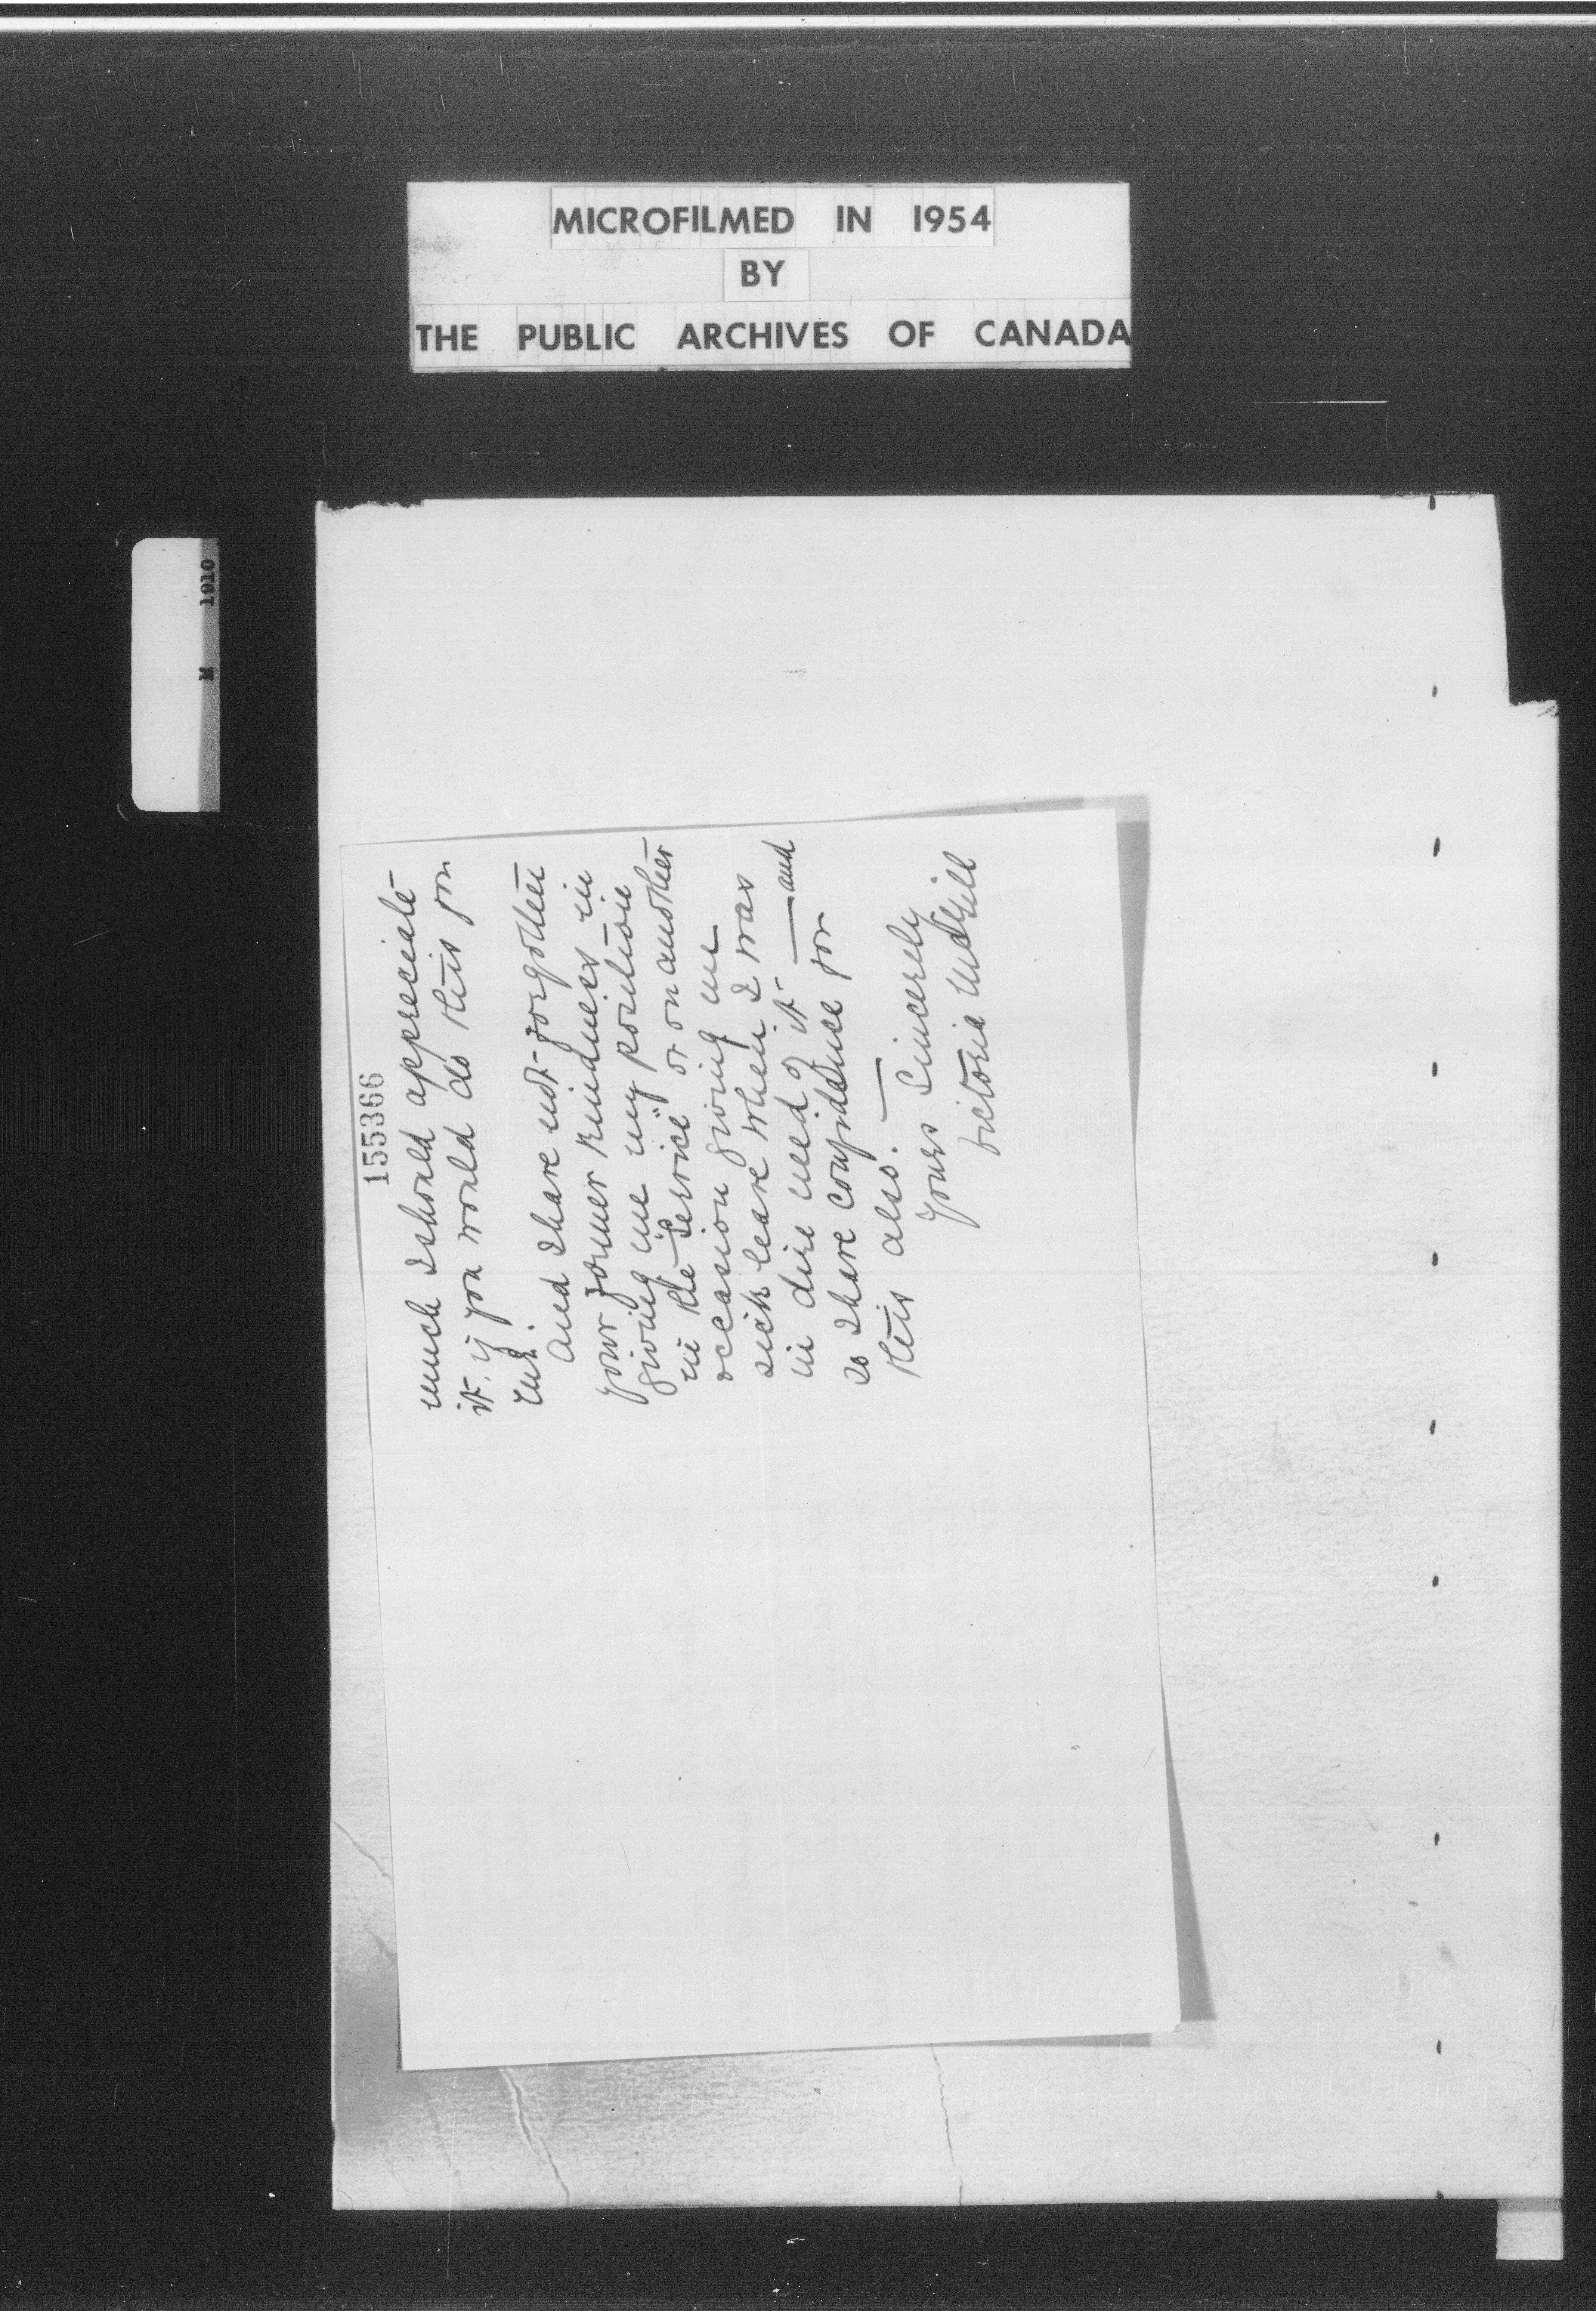 MICROFILMED IN 1954
BY
THE PUBLIC ARCHIVES OF CANADA
M 1910
155366
much I should appreciate
it, if you would do this for
me.
And I have not forgotten
your former kindness in
giving me my position
in the "Service" or on another
occasion giving me
sick leave when I was
in dire need of it — and
so I have confidence for
this also. —
Yours Sincerely
Victoria McGill